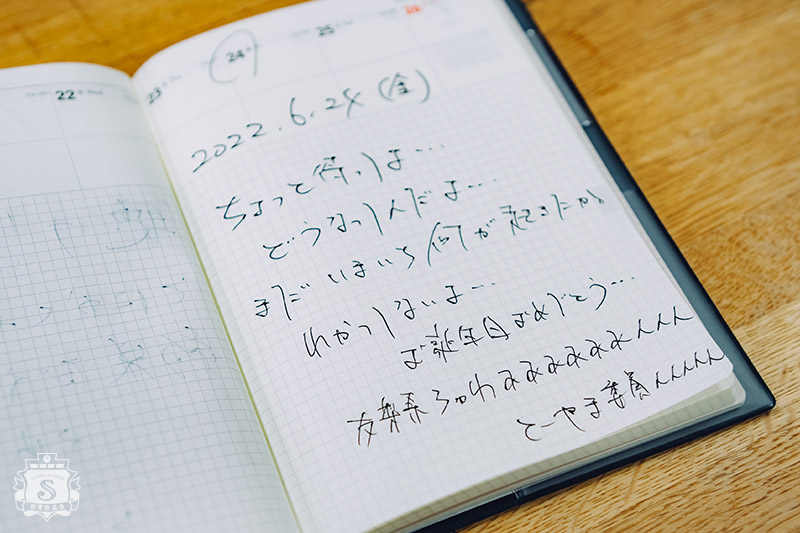 22
23
24
25
26
2022.6.24 (金)
ちょっと待ってよ…
どうなってんだよ…
まだいまいち何が起こったか
わかってないよ…
お誕生日おめでとう…
ぁぁぁぁぁぁんんん
とーやま委員んんんん
S